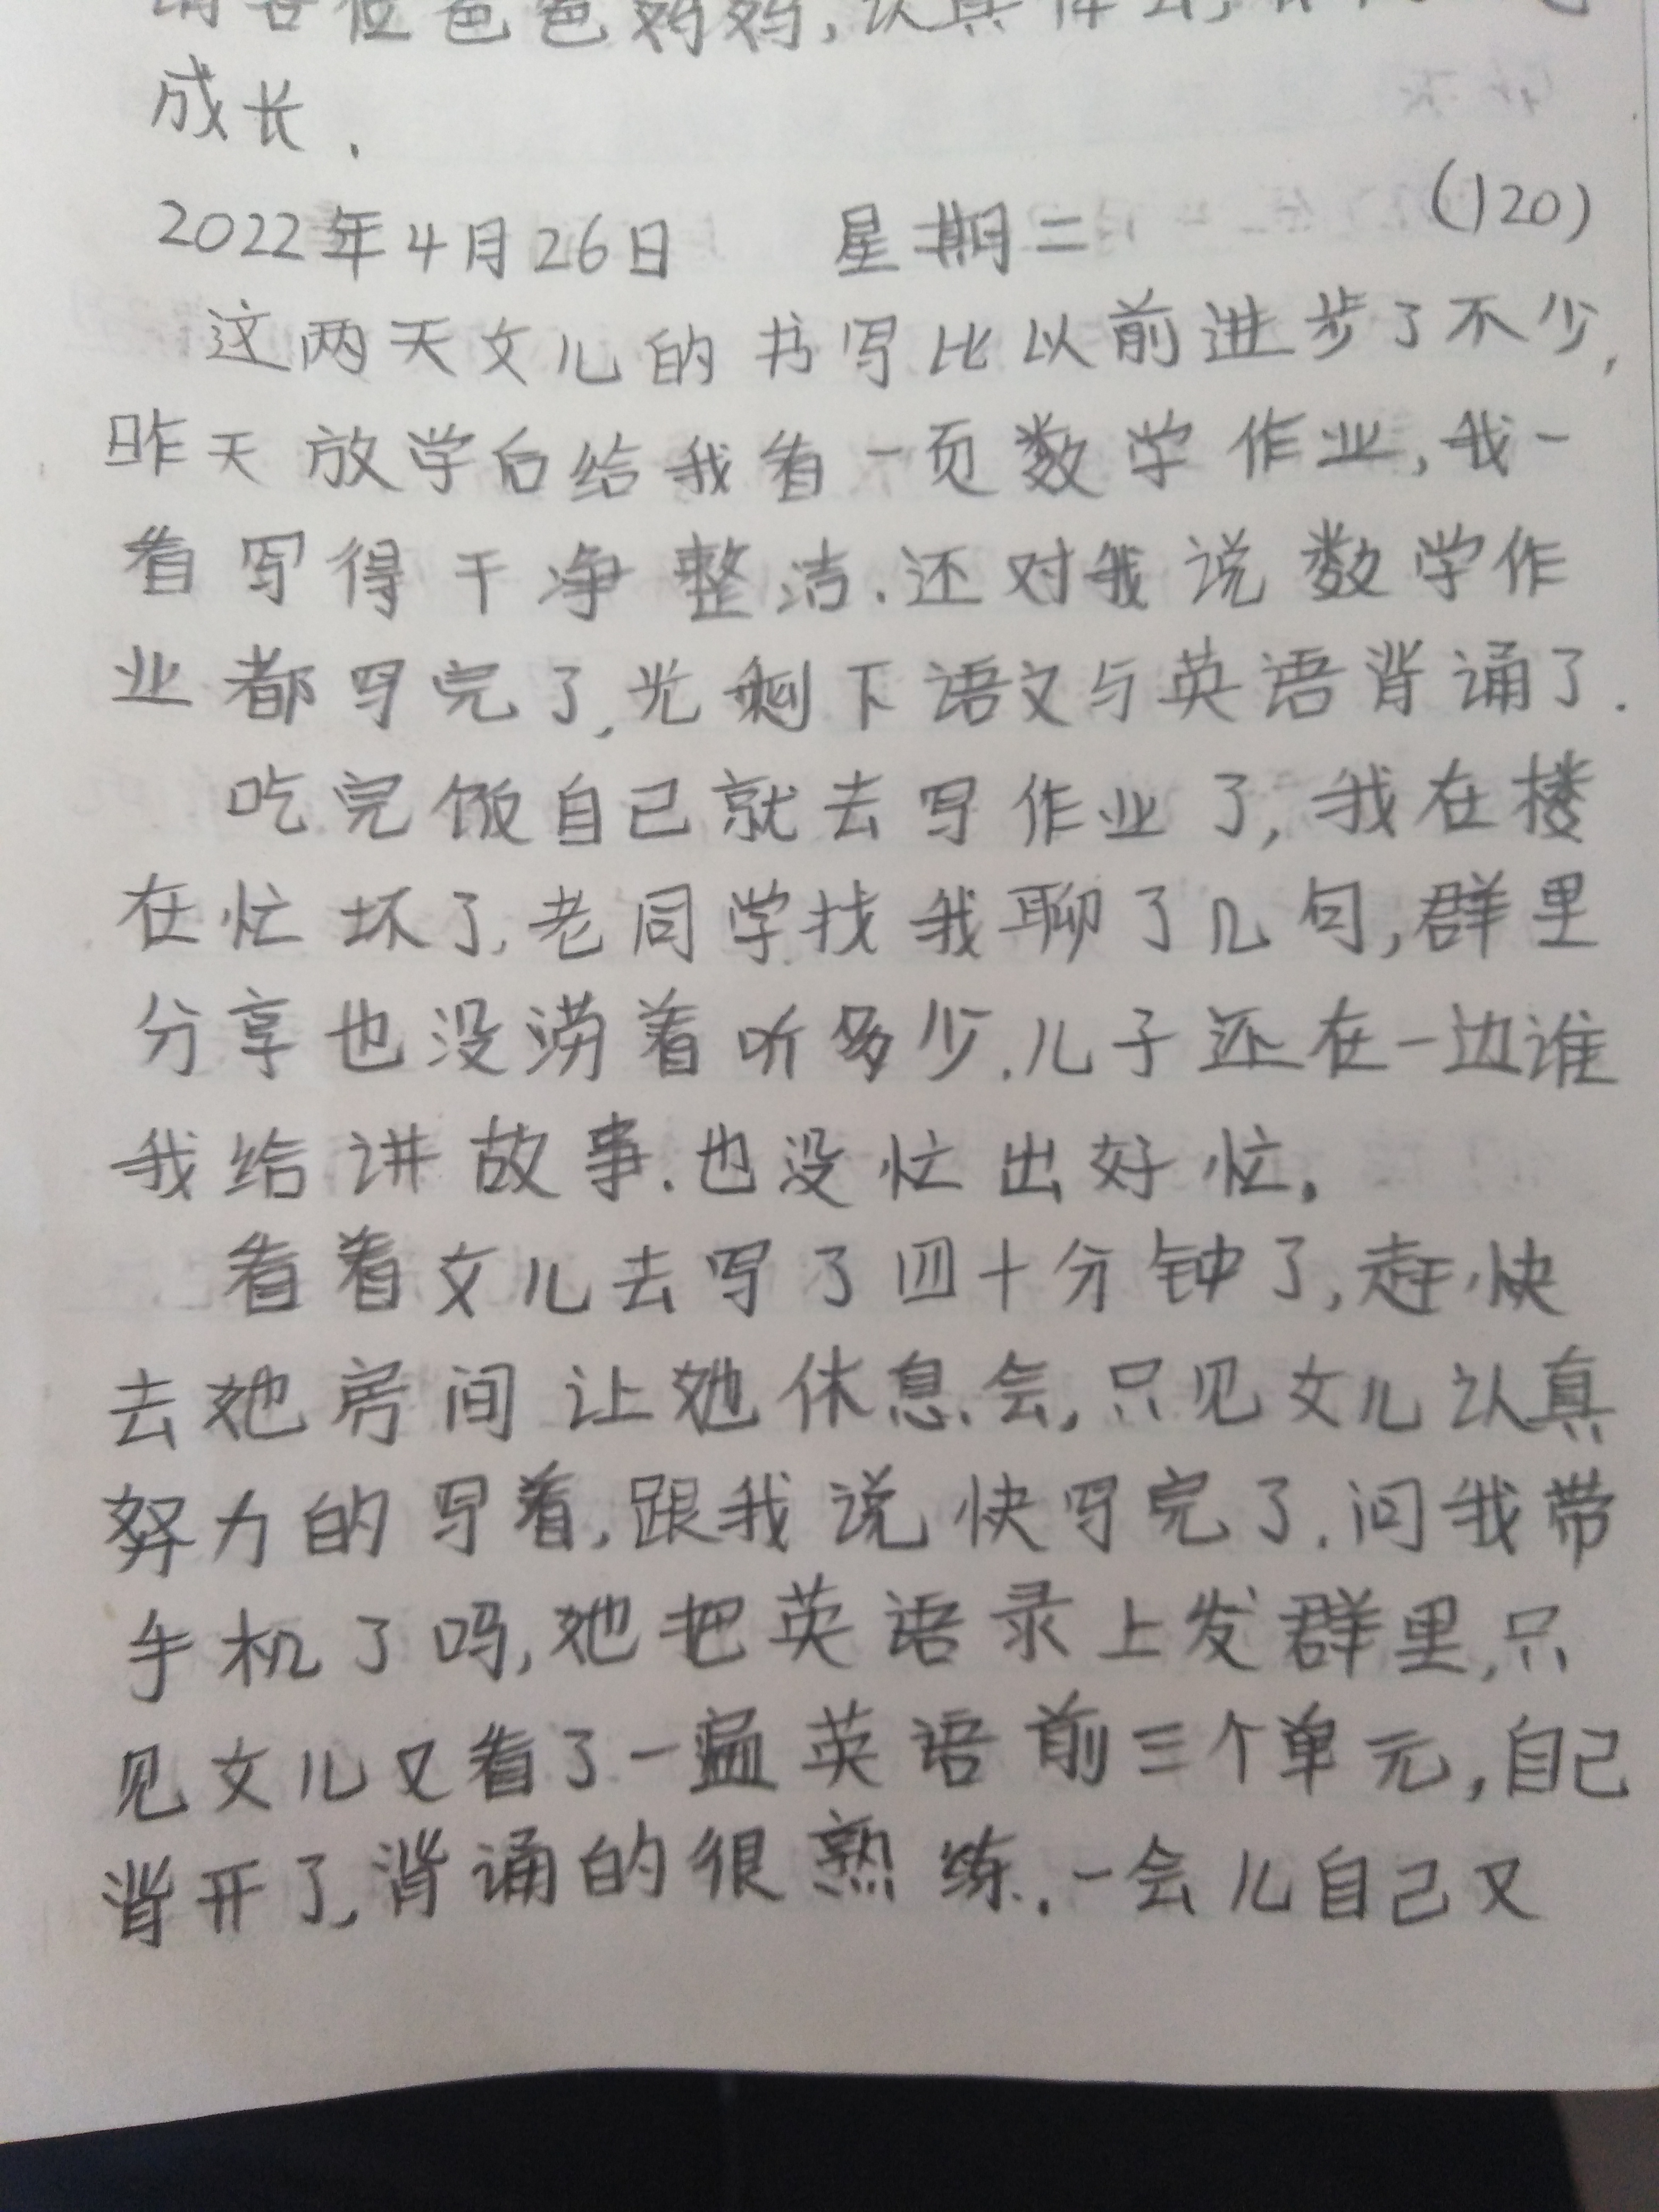 请各位爸爸妈妈,认真体会,
成长.
(120)
2022年4月26日 星期二
这两天女儿的书写比以前进步了不少,
昨天放学后给我看一页数学作业,我一
看写得干净整洁.还对我说数学作
业都写完了,光剩下语文与英语背诵了.
吃完饭自己就去写作业了,我在楼
在忙坏了,老同学找我聊了几句,群里
分享也没涝着听多少.儿子还在一边谁
我给讲故事.也没忙出好忙.
看着女儿去写了四十分钟了,赶快
去她房间让她休息会,只见女儿认真
努力的写着,跟我说快写完了.问我带
手机了吗,她把英语录上发群里,只
见女儿又看了一遍英语前三个单元,自己
背开了,背诵的很熟练.一会儿自己又